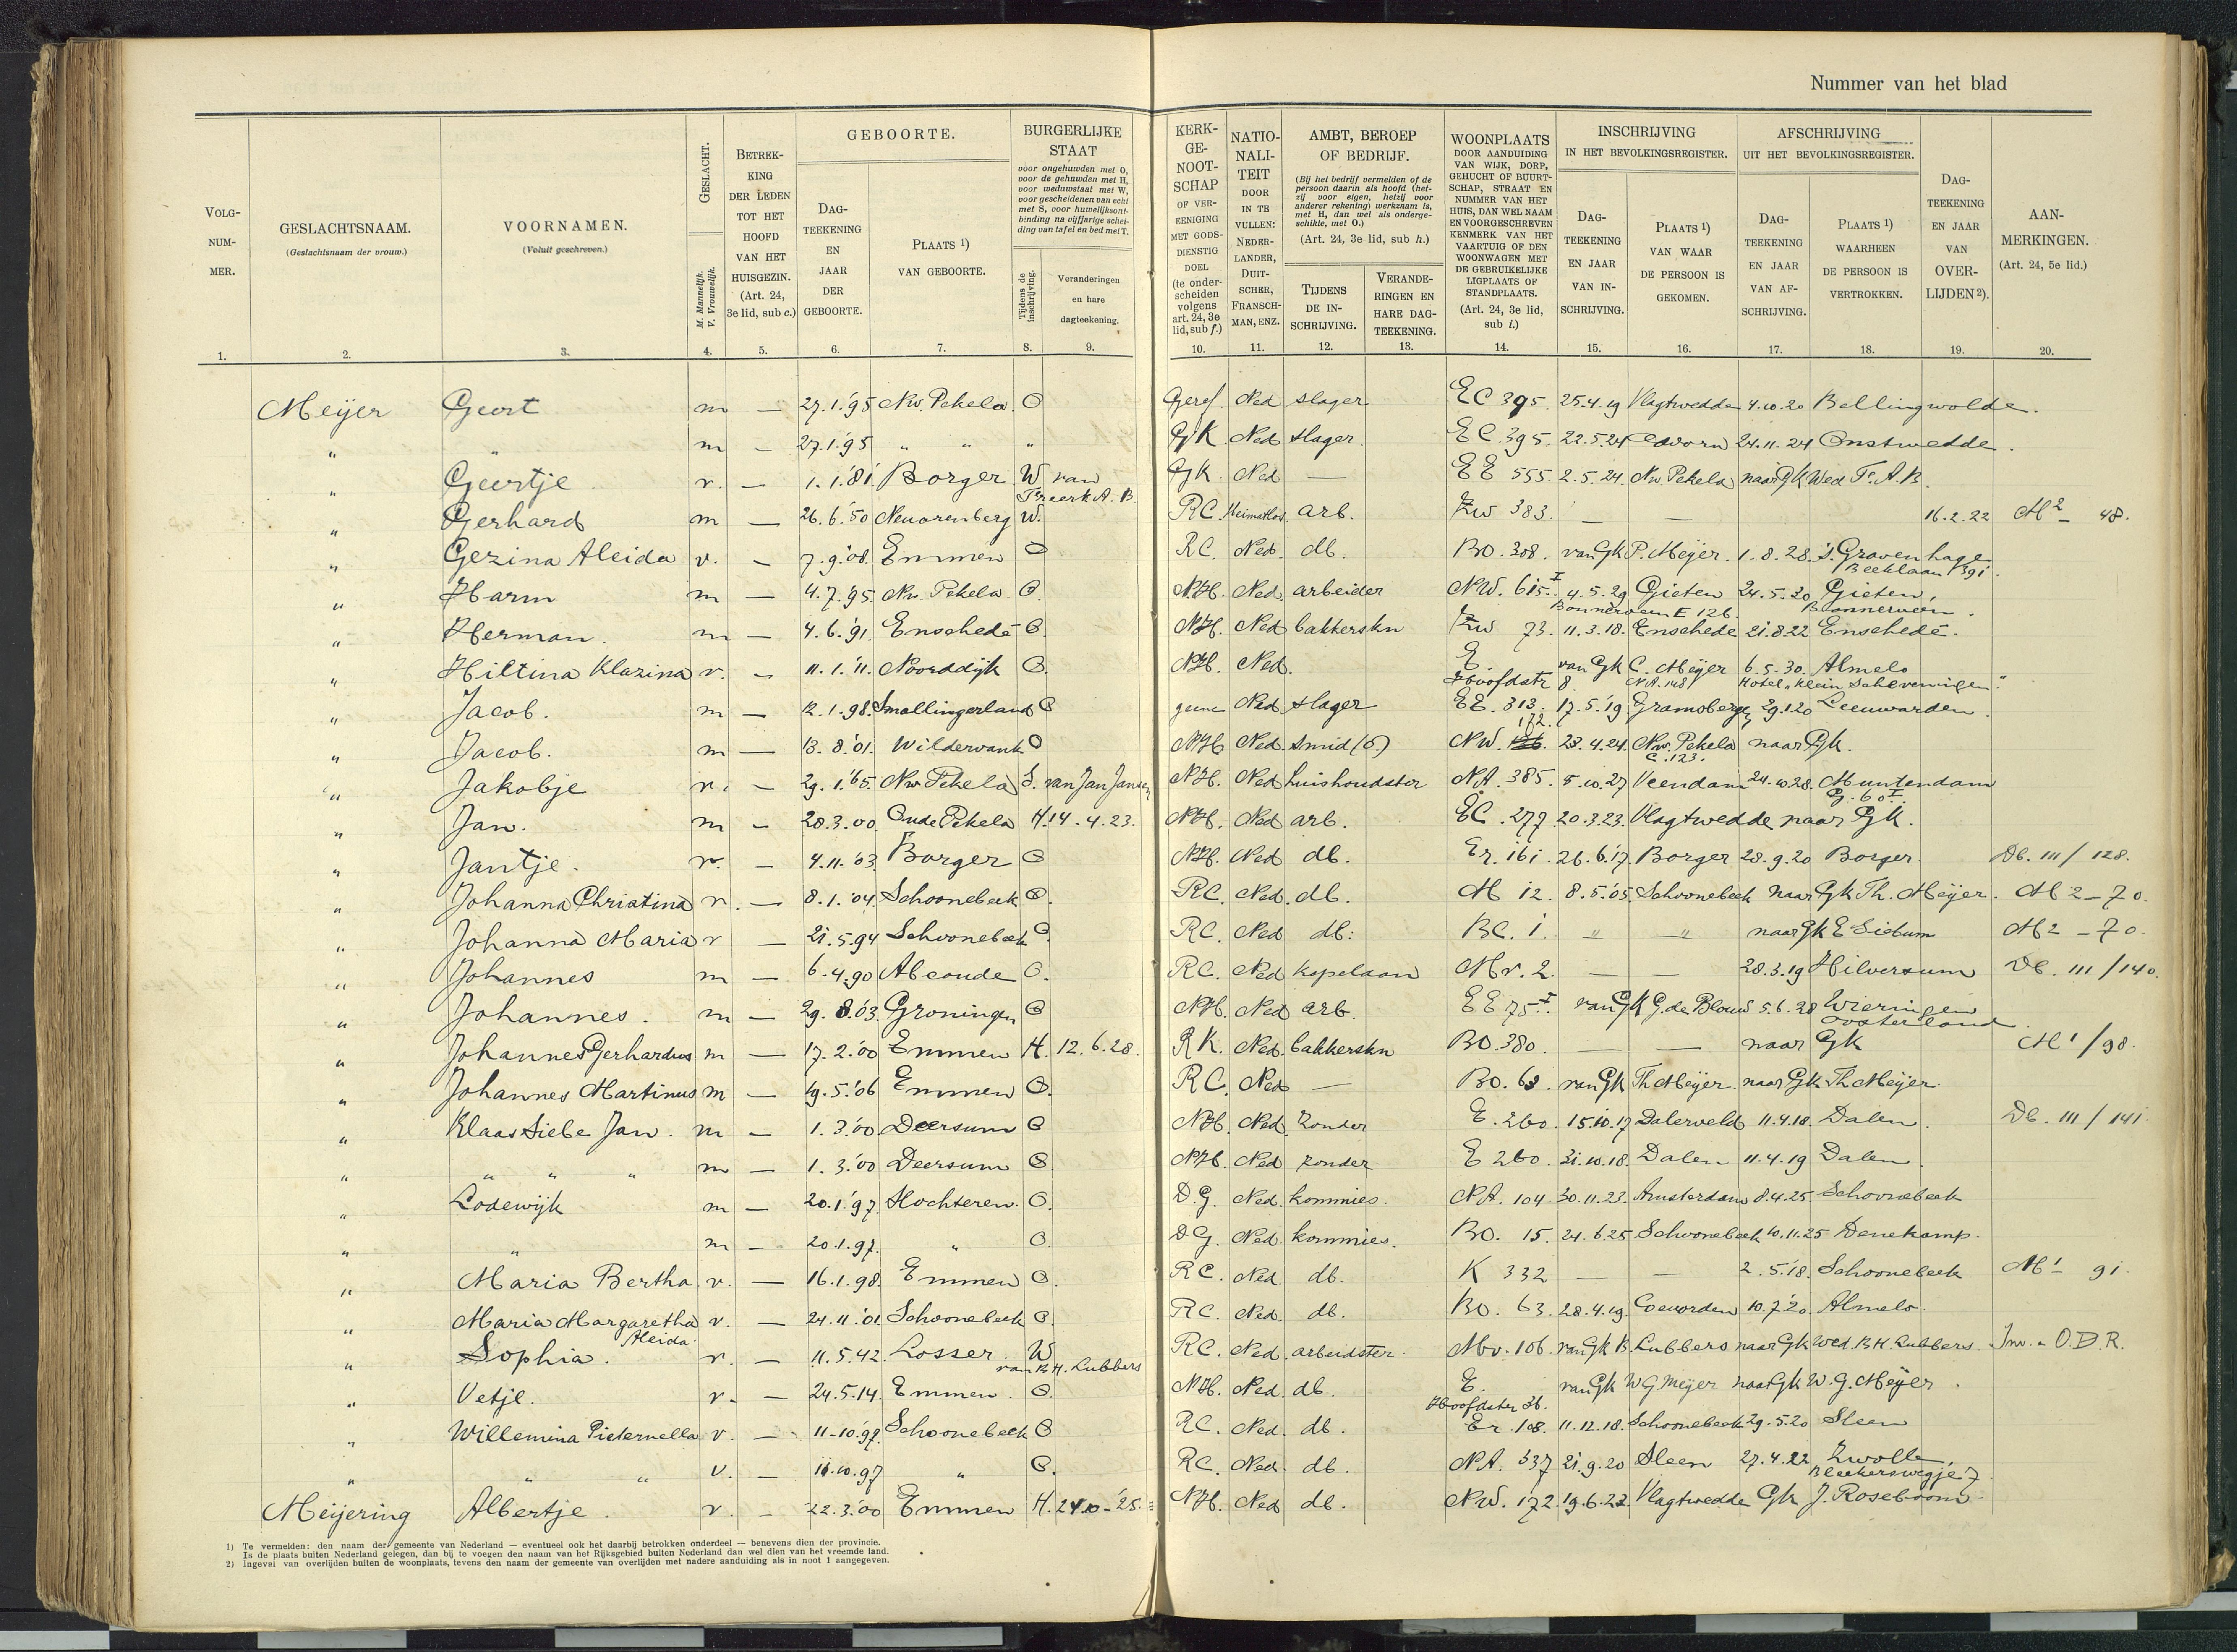 Nummer van het blad
VOLGNUMMER.
GESLACHTSNAAM.
(Geslachtsnaam der vrouw.)
VOORNAMEN.
(Voluit geschreven.)
GESLACHT.
M. Mannelijk.
V. Vrouwelijk.
BETREKKING DER LEDEN TOT HET HOOFD VAN HET HUISGEZIN.
(Art. 24, 3e lid, sub c.)
GEBOORTE.
DAGTEEKENING EN JAAR DER GEBOORTE.
PLAATS 1) VAN GEBOORTE.
BURGERLIJKE STAAT
voor ongehuwden met O, voor de gehuwden met H, voor weduwstaat met W, voor gescheidenen van echt met S, voor huwelijksontbinding na vijfjarige scheiding van tafel en bed met T.
Tijdens de inschrijving.
Veranderingen en hare dagteekening.
KERKGENOOTSCHAP OF VEREENIGING MET GODSDIENSTIG DOEL
(te onderscheiden volgens art. 24, 3e lid, sub f.)
NATIONALITEIT DOOR IN TE VULLEN: NEDERLANDER, DUITSCHER, FRANSCHMAN, ENZ.
AMBT, BEROEP OF BEDRIJF.
(Bij het bedrijf vermelden of de persoon daarin als hoofd (hetzij voor eigen, hetzij voor anderer rekening) werkzaam is, met H, dan wel als ondergeschikte, met O.)
(Art. 24, 3e lid, sub h.)
TIJDENS DE INSCHRIJVING.
VERANDERINGEN EN HARE DAGTEEKENING.
WOONPLAATS DOOR AANDUIDING VAN WIJK, DORP, GEHUCHT OF BUURTSCHAP, STRAAT EN NUMMER VAN HET HUIS, DAN WEL NAAM EN VOORGESCHREVEN KENMERK VAN HET VAARTUIG OF DEN WOONWAGEN MET DE GEBRUIKELIJKE LIGPLAATS OF STANDPLAATS.
(Art. 24, 3e lid, sub i.)
INSCHRIJVING IN HET BEVOLKINGSREGISTER.
DAGTEEKENING EN JAAR VAN INSCHRIJVING.
PLAATS 1) VAN WAAR DE PERSOON IS GEKOMEN.
AFSCHRIJVING UIT HET BEVOLKINGSREGISTER.
DAGTEEKENING EN JAAR VAN AFSCHRIJVING.
PLAATS 1) WAARHEEN DE PERSOON IS VERTROKKEN.
DAGTEEKENING EN JAAR VAN OVERLIJDEN 2).
AANMERKINGEN.
(Art. 24, 5e lid.)
1. 2. 3. 4. 5. 6. 7. 8. 9. 10. 11. 12. 13. 14. 15. 16. 17. 18. 19. 20.
Meijer Geert m — 27.1.'95 Nw. Pekela O Geref. Ned slager EC 395. 25.4.19 Vlagtwedde 4.10.20 Bellingwolde.
" " m — 27.1.'95 " " " GK Ned slager. EC. 395. 22.5.24 24.11.24 Onstwedde.
" Geertje v. — 1.1.'81 Borger W van Freerk A. B. GK. Ned — EE 555. 2.5.24. Nw. Pekela naar GK Wed Fr. A. B.
" Gerhard m — 26.6.'50 Neuorenberg W. RC. Heimatlos arb. Zw 383. — — 16.2.22 M2 — 48.
" Gezina Aleida v. — 7.9.'08. Emmen O RC. Ned. db. BO. 308. van GK P. Meijer. 1.8.28. 's Gravenhage Beeklaan 391.
" Harm m — 4.7.'95. Nw. Pekela O. NH. Ned. arbeider NW. 615 I. 4.5.29 Gieten 24.5.30 Gieten, Bonnerveen E 126. Bonnerveen.
" Herman. m — 4.6.'91. Enschedé O. NH. Ned bakkerskn Zw 73. 11.3.18. Enschede 21.8.22 Enschedé.
" Hiltina Klazina v. — 11.1.'11. Noorddijk O. NH. Ned. E. Hoofdstr 8 van GK C. Meijer NA. 148 6.5.30. Almelo Hotel "Klein Scheveningen".
" Jacob. m — 12.1.98. Smallingerland O Ned slager EE. 313. 17.5.'19. Gramsbergen 29.1.20 Leeuwarden.
" Jacob. m — 13.8.'01. Wildervank O NH Ned. smid (O.) NW. 172. 23.4.24. Nw. Pekela C. 123. naar GK.
" Jakobje v. — 29.1.'65. Nw Pekela S. van Jan Jansen NH. Ned huishoudster NA. 385. 5.10.27 Veendam 24.10.28. Muntendam G. 60 I.
" Jan. m — 28.3.00. Oude Pekela H. 14.4.23. NH. Ned arb. EC. 277 20.3.23. Vlagtwedde naar GK.
" Jantje. v. — 4.11.'03. Borger O NH. Ned db. Er. 161. 26.6.'17. Borger 28.9.20 Borger. Db. III/128.
" Johanna Christina v. — 8.1.'04. Schoonebeek O. RC. Ned. db. M 12. 8.5.'05. Schoonebeek naar GK Th. Meijer. M 2 — 70.
" Johanna Maria v — 21.5.94 Schoonebeek O. RC. Ned db. BC. 1. " " naar GK E Siebum M 2 — 70.
" Johannes m — 6.4.90 Abcoude O. RC. Ned kapelaan Mv. 2. — — 28.3.19 Hilversum Db. III/140.
" Johannes. m — 29.8.'03. Groningen O NH. Ned arb. EE 75 I. van GK G. de Blouw 5.6.28 Wieringen Oosterland.
" Johannes Gerhardus m — 17.2.'00 Emmen H. 12.6.28. RK. Ned. bakkerskn BO. 380. — — naar GK M1/98.
" Johannes Martinus m — 19.5.'06 Emmen O. RC. Ned — Bo. 63. van GK Th Meijer. naar GK Th Meijer.
" Klaas Siebe Jan. m — 1.3.'00 Deersum O NH. Ned. Zonder E. 260. 15.10.17 Dalerveld 11.4.18. Dalen. Db. III/141.
" " " " m — 1.3.'00 Deersum O. NH. Ned zonder E 260. 31.10.18. Dalen 11.4.19 Dalen.
" Lodewijk m — 20.1.'97. Slochteren. O. DG. Ned. kommies. NA. 104 30.11.23. Amsterdam 8.4.25. Schoonebeek
" " m — 20.1.97. " O. DG. Ned. kommies. BO. 15. 24.6.25 Schoonebeek 10.11.25 Denekamp.
" Maria Bertha v. — 16.1.98. Emmen O. RC. Ned db. K 332 — — 2.5.'18. Schoonebeek M1 — 91.
" Maria Margaretha Aleida v. — 24.11.'01. Schoonebeek O. RC. Ned. db. BO. 63. 28.4.19. Coevorden 10.7.'20. Almelo
" Sophia. v. — 11.5.42. Losser W van B.H. Lubbers RC. Ned. arbeidster. Mv. 106. van GK B. Lubbers naar GK Wed. B.H. Lubbers. Inw. O.D.R.
" Vetje. v. — 24.5.14. Emmen. O. NH. Ned. db. E. Hoofdstr 36. van GK W G Meijer naar GK W. G. Meijer.
" Willemina Pieternella v. — 11-10.'97. Schoonebeek O RC. Ned. db. Er. 108. 11.12.18. Schoonebeek 29.5.20 Sleen
" " " v. — 11.10.97 " O. RC. Ned. db. NA. 537 21.9.20 Sleen 27.4.22 Zwolle, Bleekerswegje 7
Meijering Albertje. v. — 22.3.'00 Emmen H. 24.10-'25. NH. Ned db. NW. 172. 19.6.22. Vlagtwedde GK J. Roseboom.
1) Te vermelden: den naam der gemeente van Nederland — eventueel ook het daarbij betrokken onderdeel — benevens dien der provincie.
Is de plaats buiten Nederland gelegen, dan bij te voegen den naam van het Rijksgebied buiten Nederland dan wel dien van het vreemde land.
2) Ingeval van overlijden buiten de woonplaats, tevens den naam der gemeente van overlijden met nadere aanduiding als in noot 1 aangegeven.